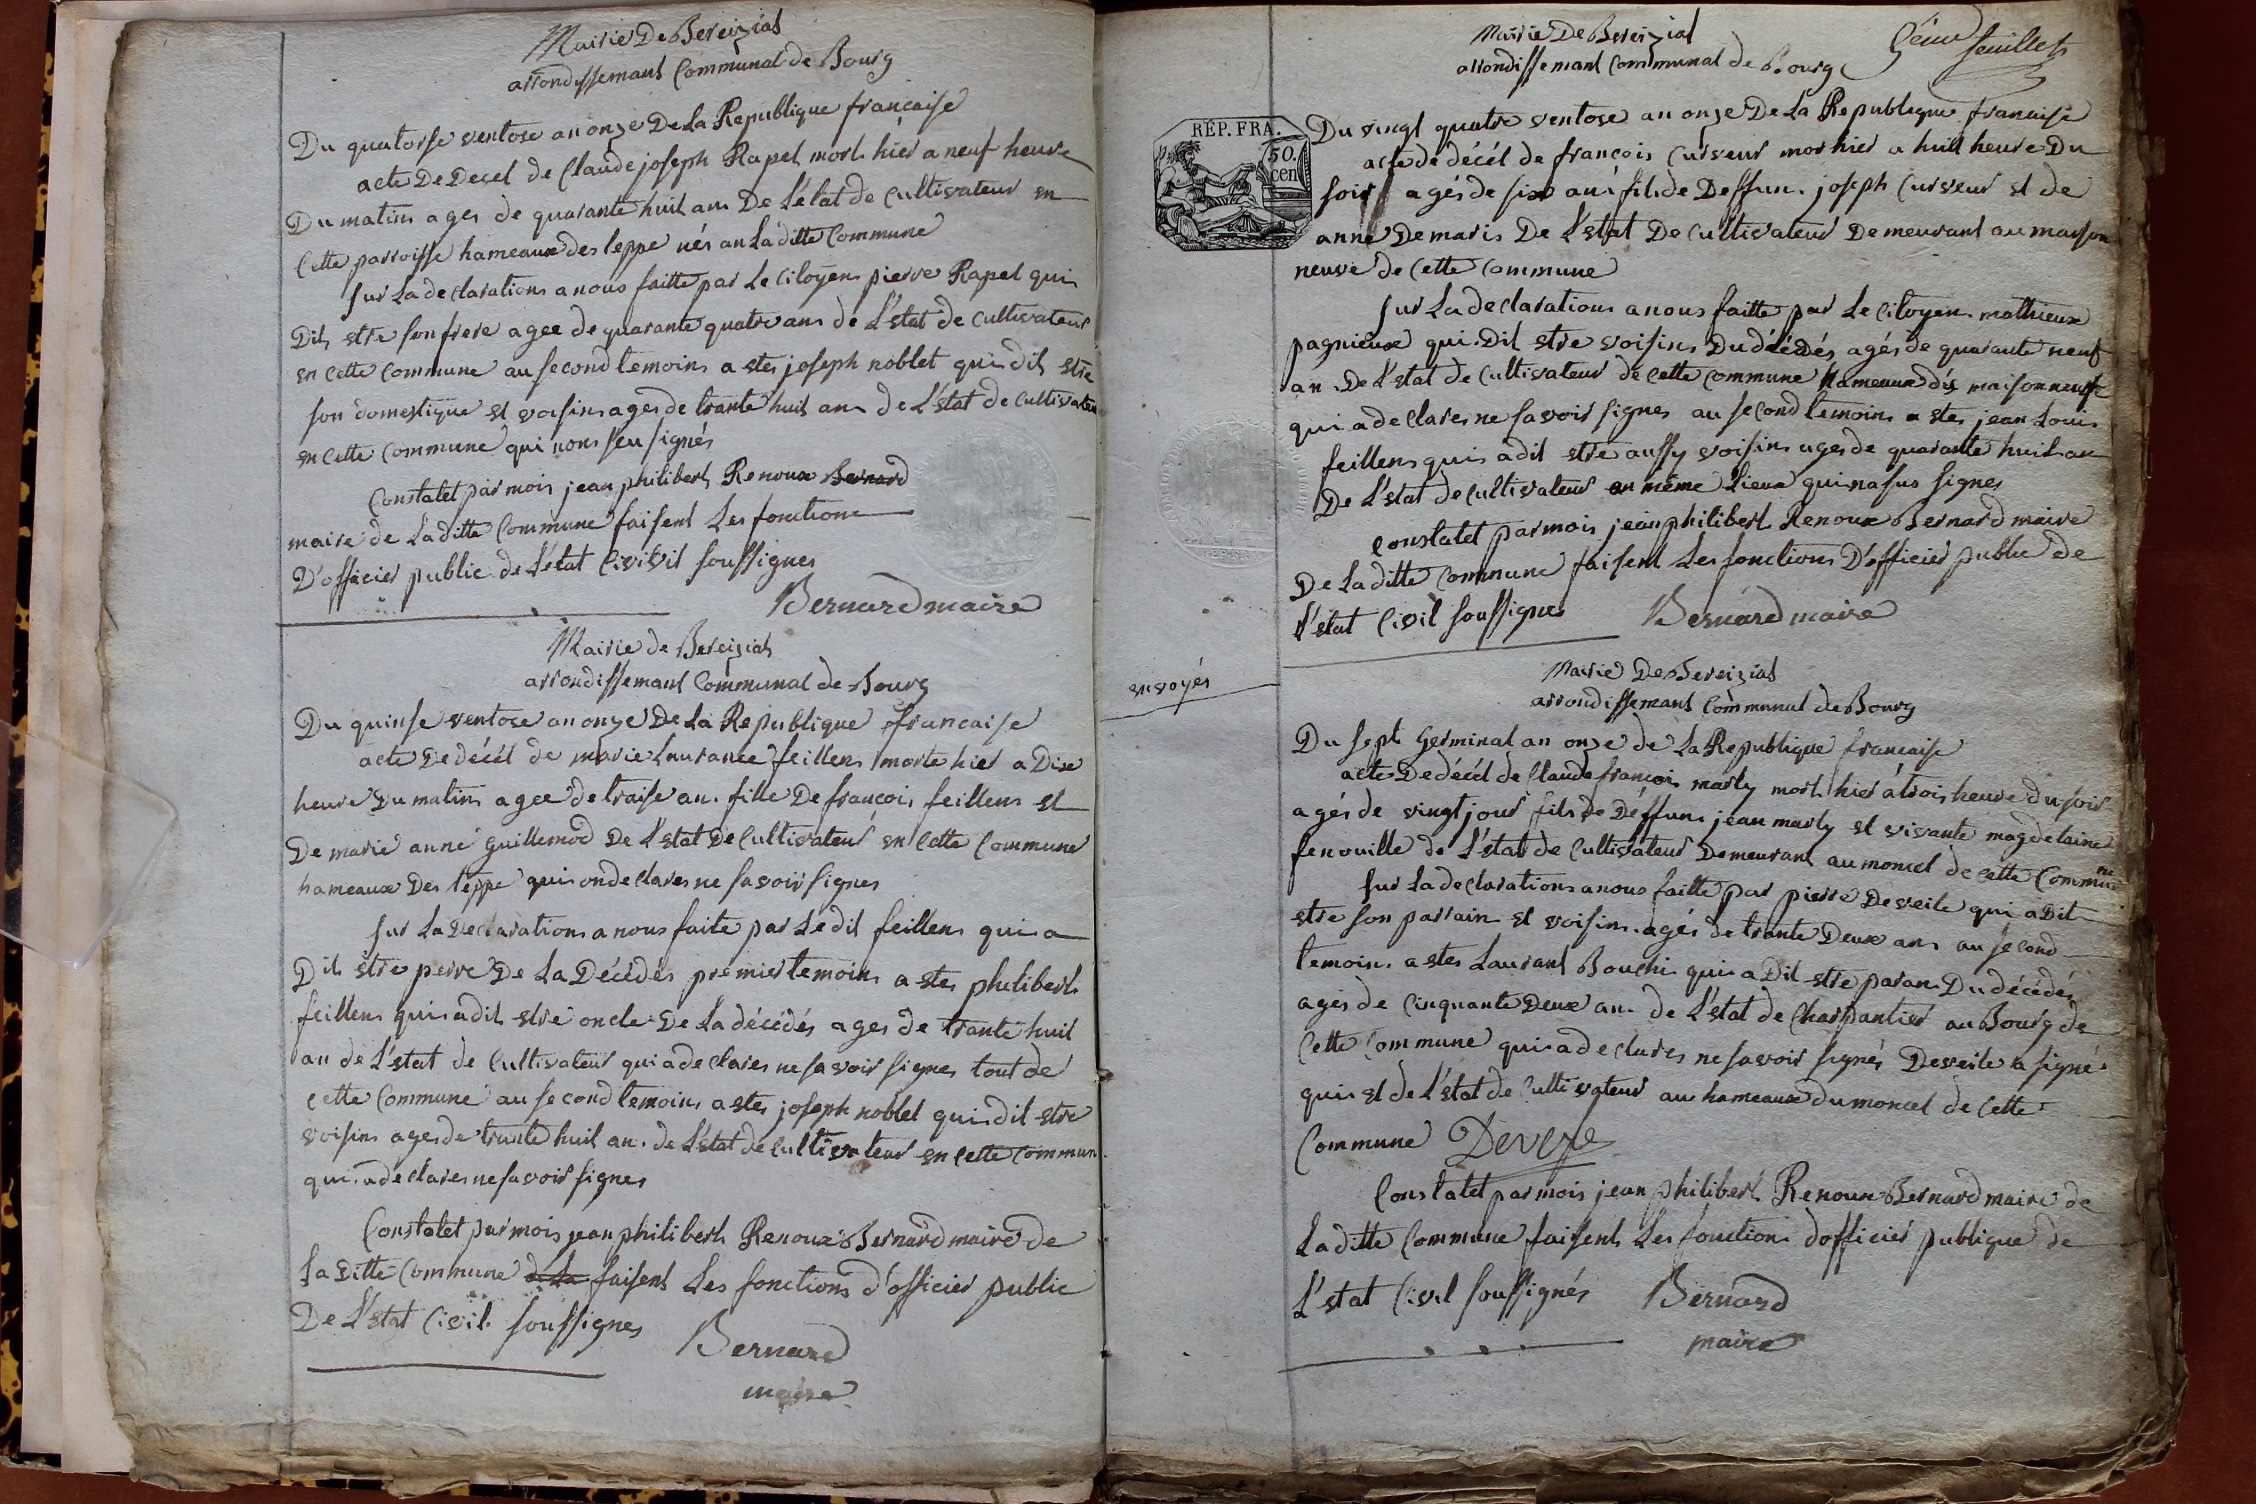 Mairie De Bereizias
arrondissemant Communal de Bourg
Du quatorse ventose an onze De La Republique francaise
acte De Decel de Claude joseph Rapel mort hier a neuf heure
Du matin ages de quarante huit an De L'état de Cultivateur en
Cette parroisse hameaux des leppe nés an La ditte Commune
sur La declaration a nous faitte par Le Citoyen pierre Rapel qui
Dit estre son frere agee de quarante quatre ans de L'estat de Cultivateur
en Cette Commune au second temoin a stes joseph noblet qui dit estre
son domestique et voisin ages de trante huit an de L'estat de Cultivateur
en Cette Commune qui nons seu signés
Constatet par mois jean philibert Renoux Bernard
maire de La ditte Commune faisent Les fonction
D'officier public de L'état Civivil soussignes
Bernard maire
Mairie de Bereizias
arrondissemant Communal de Bourg
Du quinse ventose an onze De La Republique francaise
acte De décél de marie Laurance feillens morte hier a Dix
heure Du matin agee de traise an fille De francois feillens et
De marie anné Guillemod De L'estat De Cultivateur en Cette Commune
hameaux Des leppe qui on declares ne savoir signes
sur La Declaration a nous faite par Le dit feillens qui a
Dit être perre De La Décédés premier temoin a stes philibert
feillens qui a dit estre oncle De La décédés ages de trante huit
an de L'estat de Cultivateur qui a declares ne savoir signes tout de
Cette Commune au second temoin a stes joseph noblet qui dit estre
voisin ages de trante huit an de L'estat de Cultivateur en Cette Commun
qui a declares ne savoir signes
Constatet par mois jean philibert Renoux Bernard maire de
La Ditte Commune de La faisent Les fonctions d'officier public
De L'estat Civil soussignes
Bernard
maire
5eme feuillet
Mairie De Bereizial
arrondissemant Communal de Bourg
REP. FRA.
50. cen
Du vingt quatre ventose an onze De La Republique francaise
acte de décél de francois Curveur mor hier a huit heure Du
soir agés de six an fils de Deffun joseph Curveur et de
anne Demaris De L'estat De Cultivateur Demeurant au maison
neuve de Cette Commune
sur La declaration a nous faitte par Le Citoyen mathieux
pagnieux qui Dit etre voisin Du décédés agés de quarante neuf
an De L'estat de Cultivateur de Cette Commune hameaux dés maison neufve
qui a declares ne savoir signes au second temoin a stes jean Louis
feillens qui a dit etre aussy voisin ages de quarante huit an
De L'estat de Cultivateur au même Lieux qui na sus signes
Constatet par mois jean philibert Renoux Bernard maire
De La ditte Commune faisent Les fonctions D'officier public de
L'état Civil soussignes
Bernard maire
envoyés
Mairie De Bereizias
arrondissemant Communal de Bourg
Du sept Germinal an onze de La Republique francaise
acte De décél de Claude francois marly mort hier á trois heure du soir
agés de vingt jour fils de Déffun jean marly et vivante magdelaine
fenouille de L'estat de Cultivateur Demeurant au moncel de cette Commune
sur La declaration a nous faitte par pierre Deveile qui a Dit
etre son parrain et voisin agés de trante Deux ans au second
temoin a stes Laurant Bouchi qui a Dit etre paran Du décédés
agés de Cinquante Deux an de L'estat de Charpantier au Bourg de
Cette Commune qui a declares ne savoir signés Deveile a signé
qui et de L'estat de Cultivateur au hameaux du moncel de Cette
Commune
Constatet par mois jean philibert Renoux Bernard maire de
La ditte Commune faisent Les fonction d'officier publique de
L'estat Civil soussignés
Bernard
maire